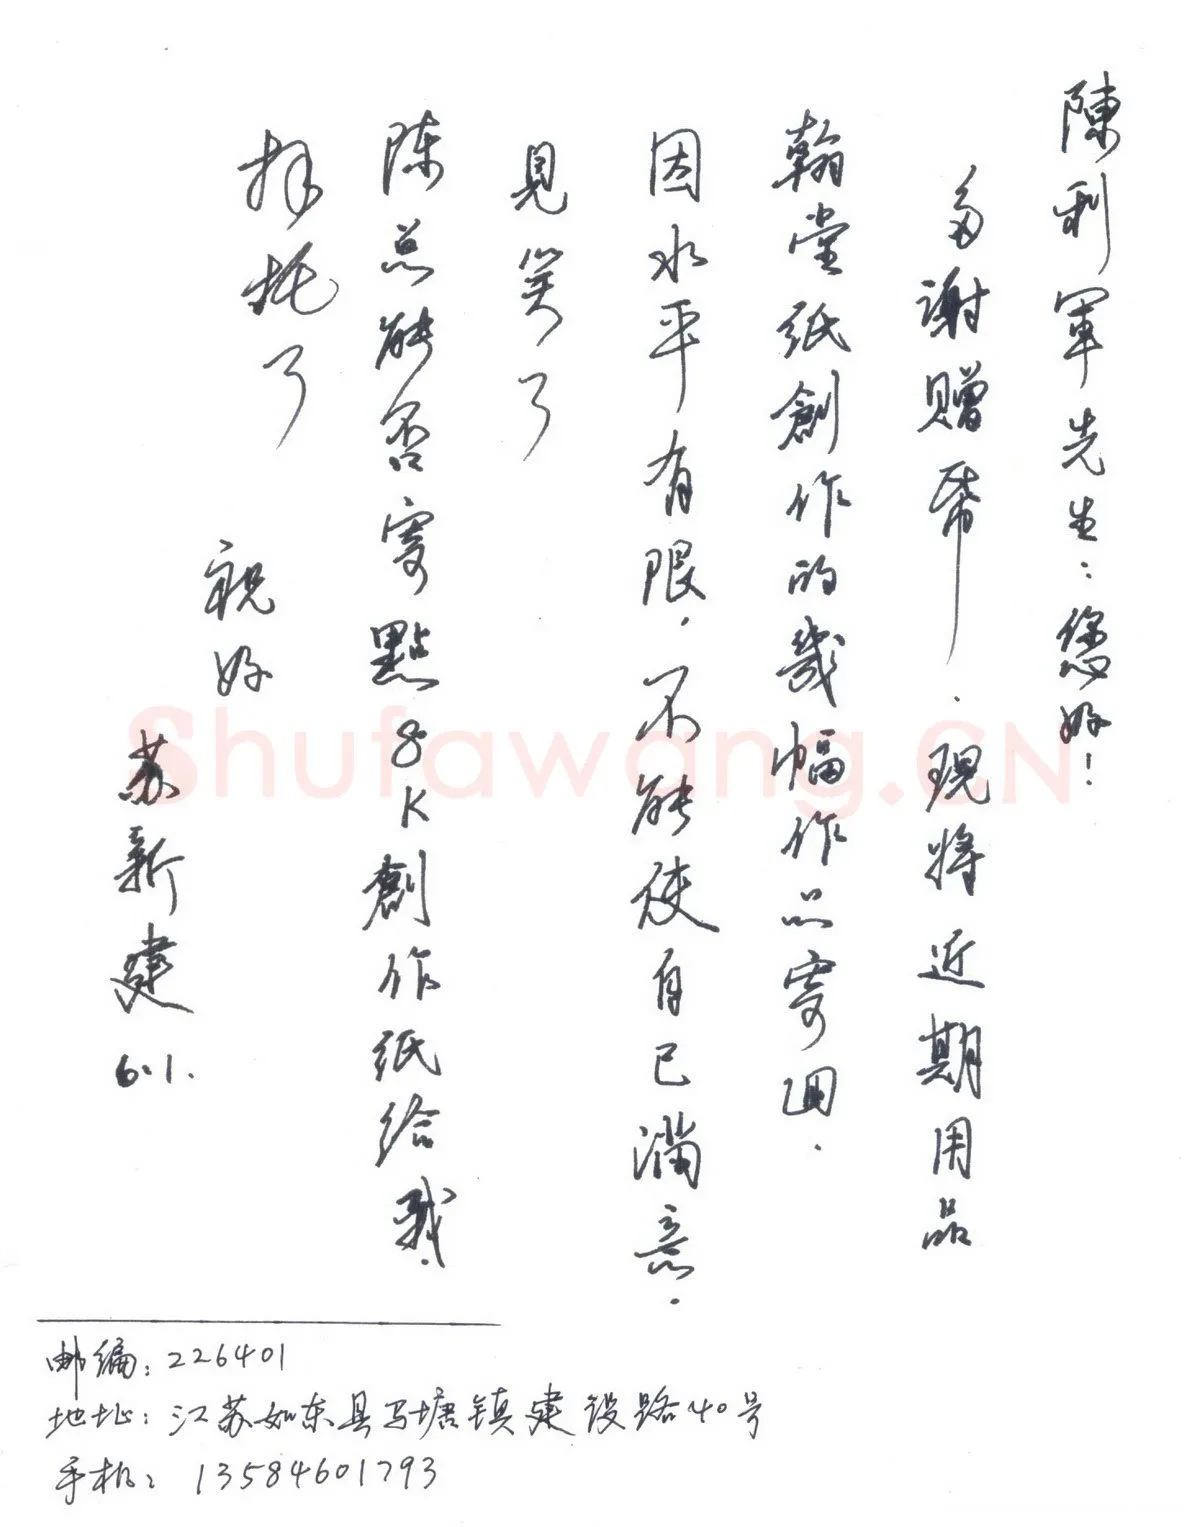 陳利軍先生：您好！
多謝贈帋．現將近期用品
翰堂纸創作的幾幅作品寄回．
因水平有限．不能使自己满意．
見笑了
陈总能否寄點8K創作纸给我．
拜托了
祝好
苏新建
6.1.
Shufawang.CN
邮编：226401
地址：江苏如东县马塘镇建设路40号
手机：13584601793